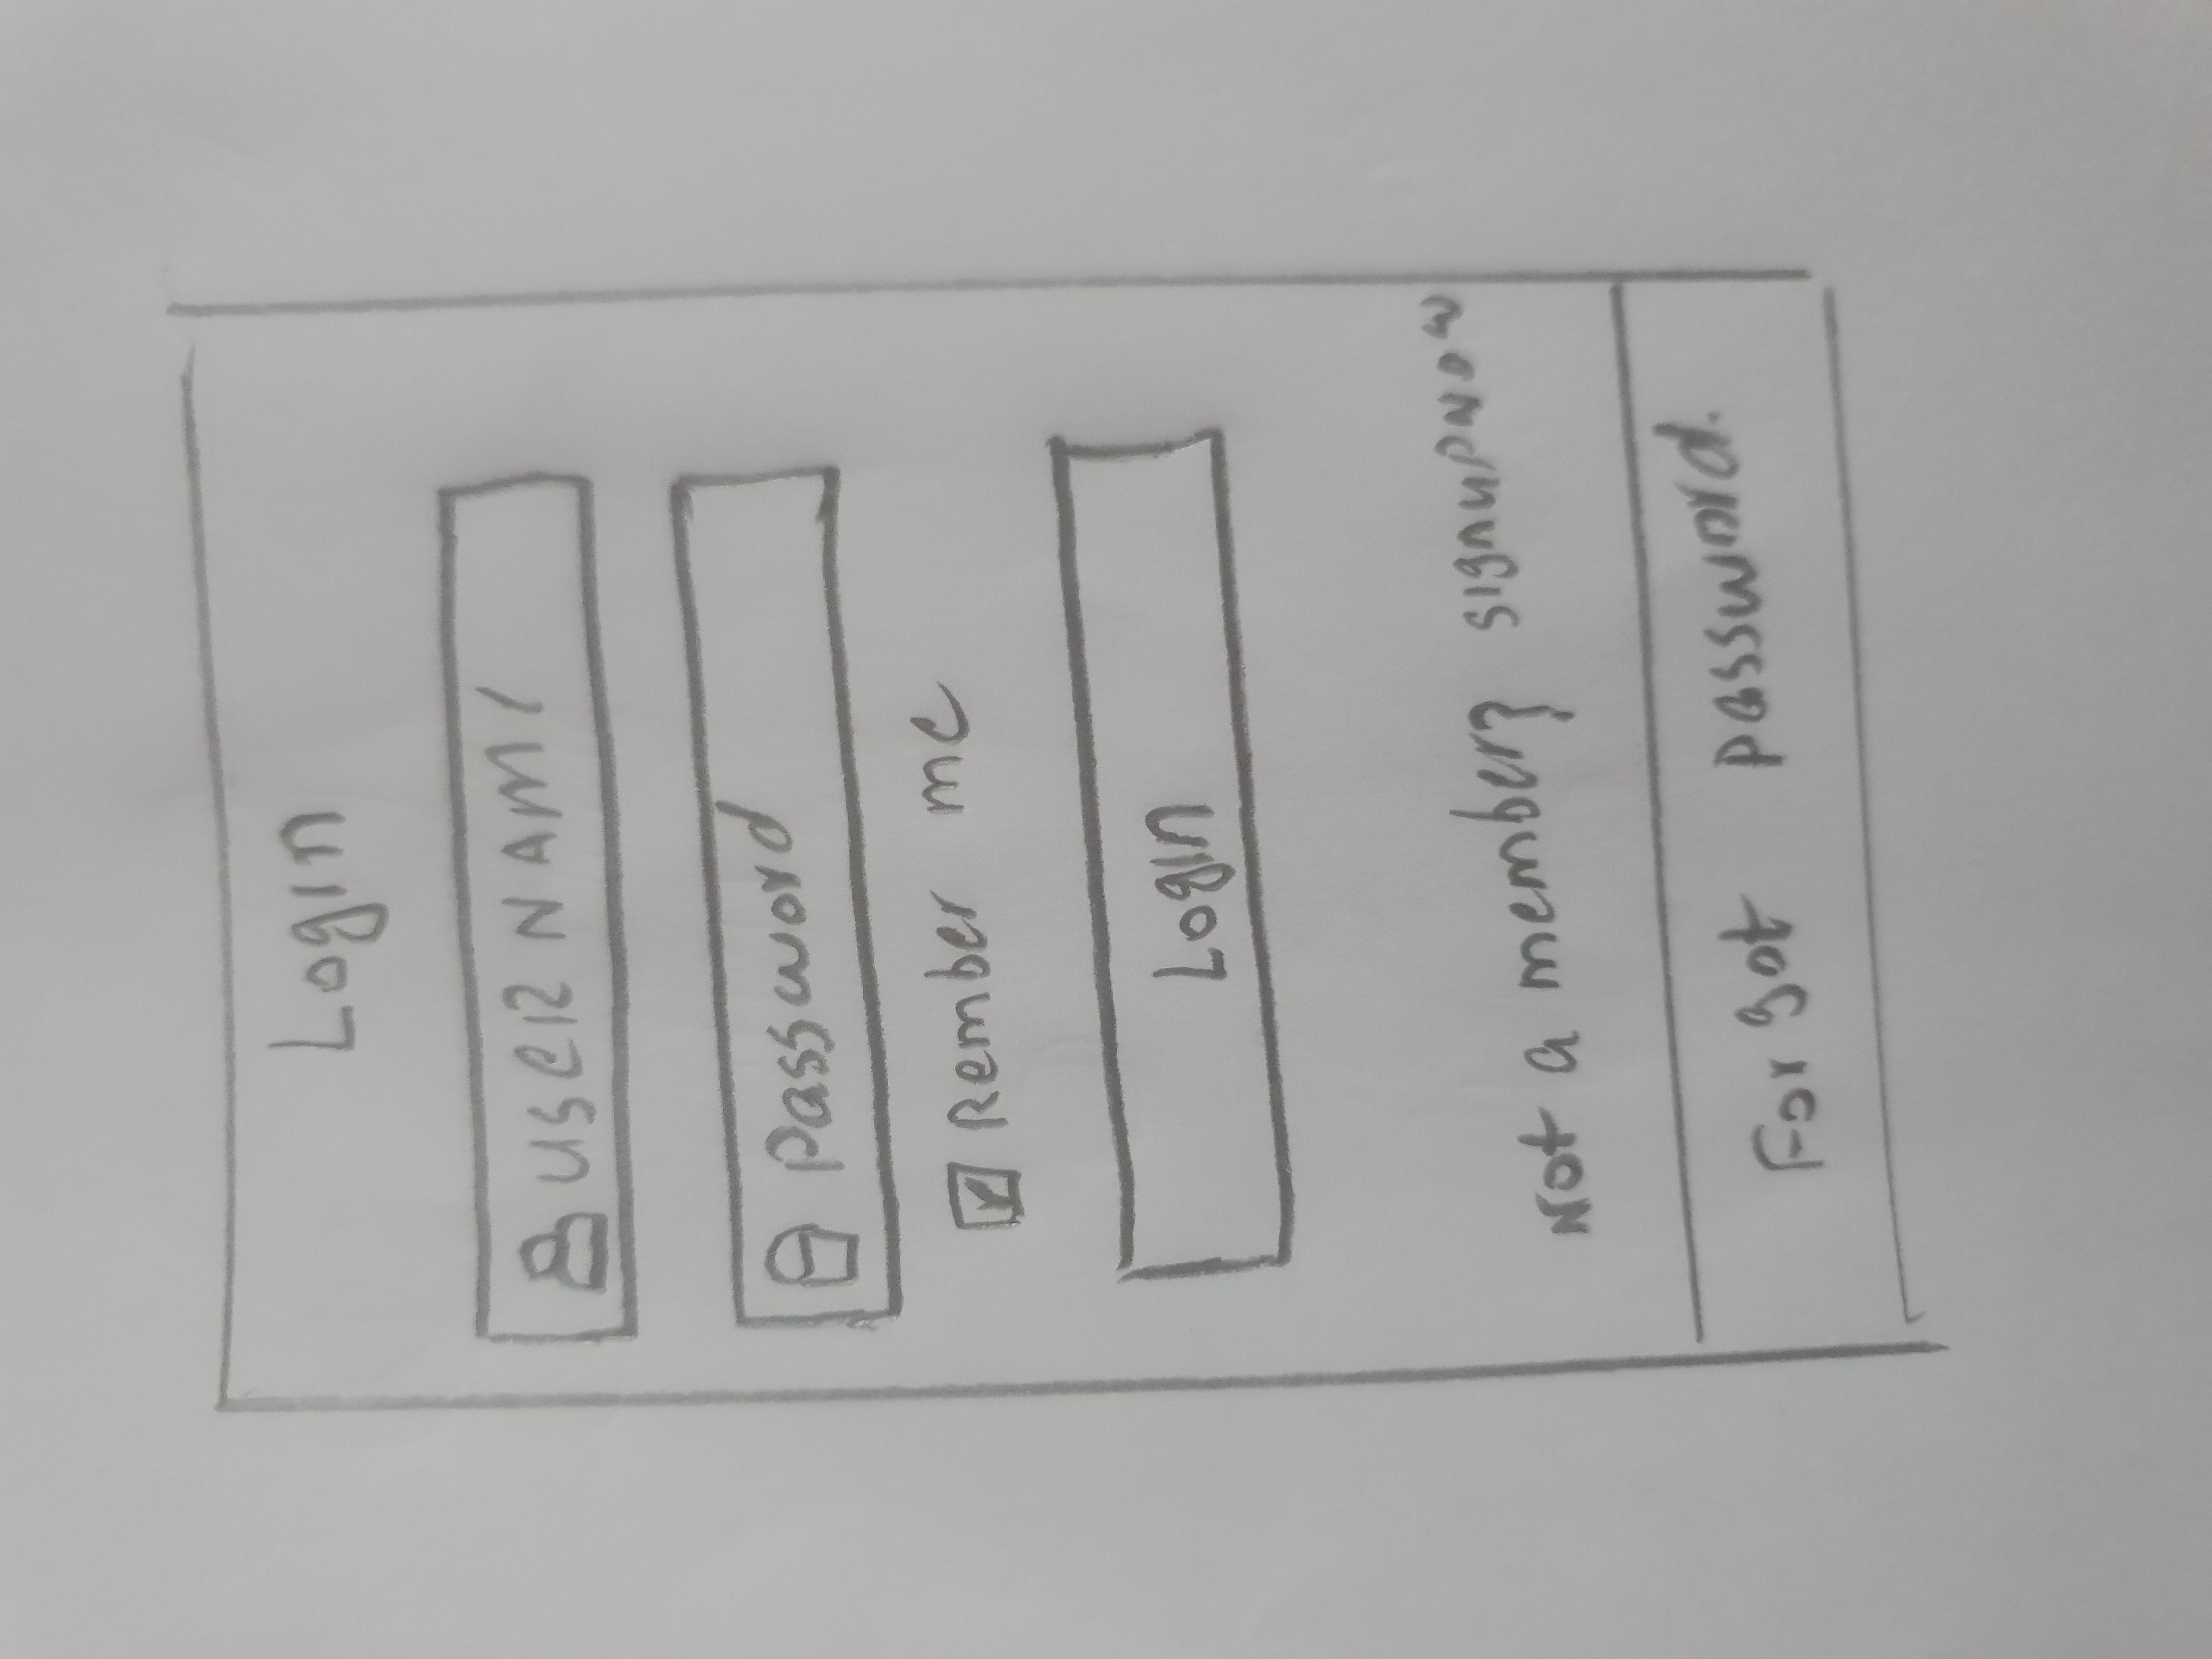 Login
USER NAME
Password
Rember me
Login
Not a member? signupnow
Forgot password.